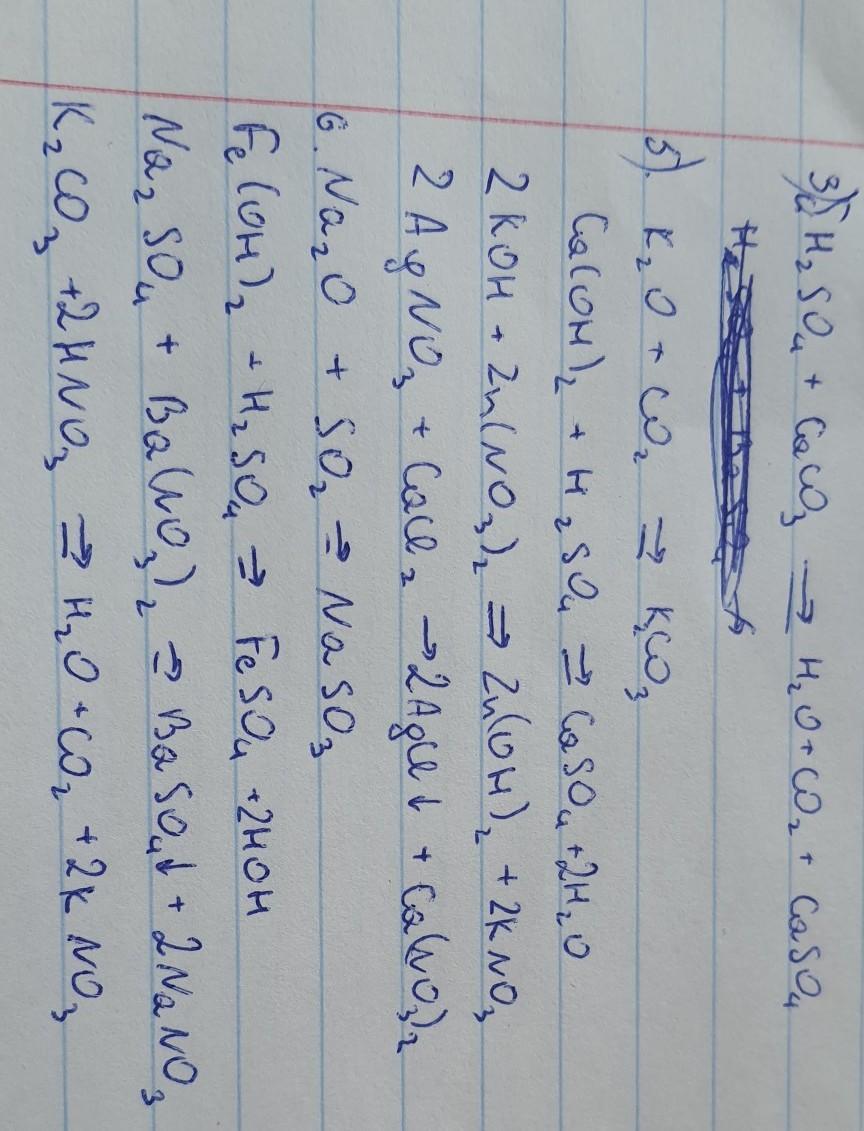 3) H₂SO₄ + CaCO₃ ⟹ H₂O + CO₂ + CaSO₄
5). K₂O + CO₂ ⇒ K₂CO₃
Ca(OH)₂ + H₂SO₄ ⇒ CaSO₄ + 2H₂O
2KOH + Zn(NO₃)₂ ⇒ Zn(OH)₂ + 2KNO₃
2AgNO₃ + CaCl₂ → 2AgCl↓ + Ca(NO₃)₂
6. Na₂O + SO₂ ⇒ NaSO₃
Fe(OH)₂ + H₂SO₄ ⇒ FeSO₄ + 2HOH
Na₂SO₄ + Ba(NO₃)₂ ⇒ BaSO₄↓ + 2NaNO₃
K₂CO₃ + 2HNO₃ ⇒ H₂O + CO₂ + 2KNO₃